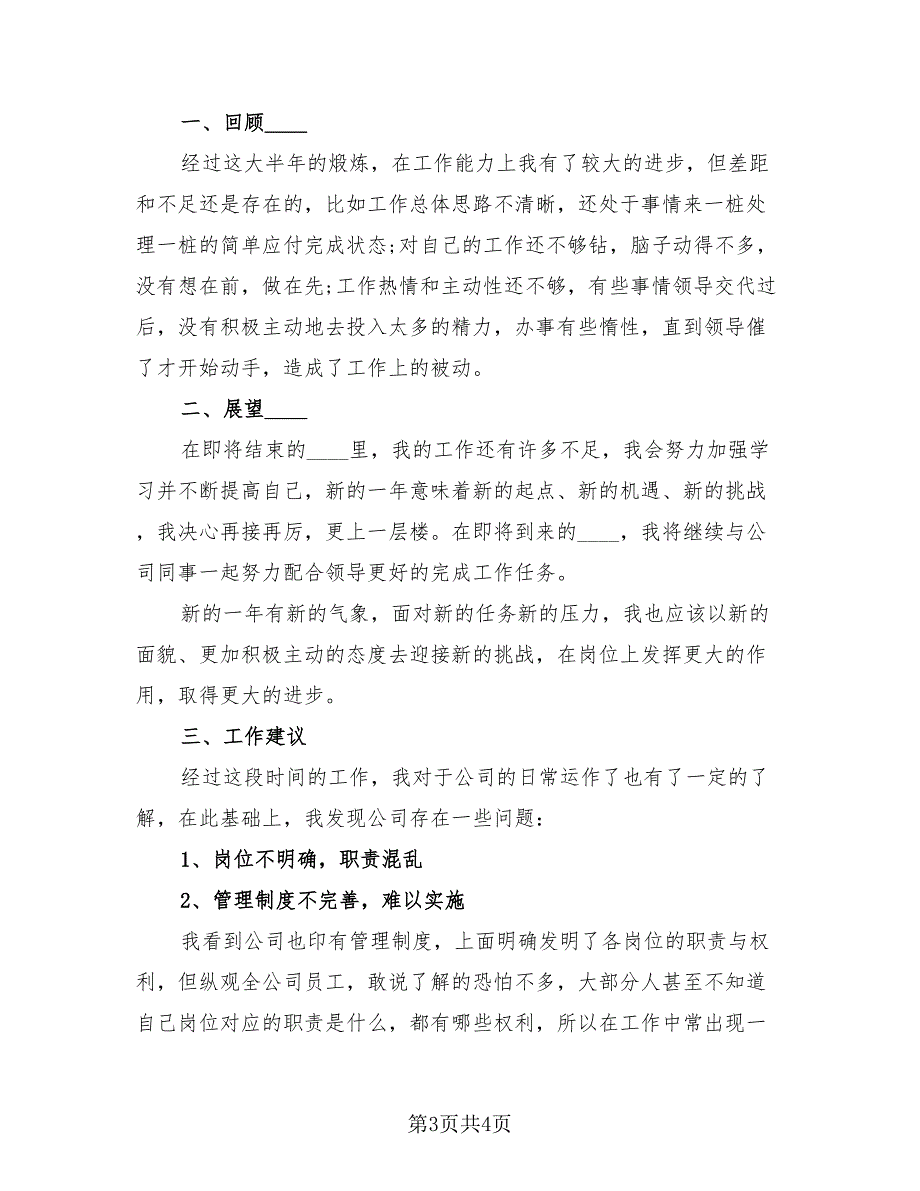 一、回顾____
经过这大半年的煅炼，在工作能力上我有了较大的进步，但差距
和不足还是存在的，比如工作总体思路不清晰，还处于事情来一桩处
理一桩的简单应付完成状态;对自己的工作还不够钻，脑子动得不多，
没有想在前，做在先;工作热情和主动性还不够，有些事情领导交代过
后，没有积极主动地去投入太多的精力，办事有些惰性，直到领导催
了才开始动手，造成了工作上的被动。
二、展望____
在即将结束的____里，我的工作还有许多不足，我会努力加强学
习并不断提高自己，新的一年意味着新的起点、新的机遇、新的挑战
，我决心再接再厉，更上一层楼。在即将到来的____，我将继续与公
司同事一起努力配合领导更好的完成工作任务。
新的一年有新的气象，面对新的任务新的压力，我也应该以新的
面貌、更加积极主动的态度去迎接新的挑战，在岗位上发挥更大的作
用，取得更大的进步。
三、工作建议
经过这段时间的工作，我对于公司的日常运作了也有了一定的了
解，在此基础上，我发现公司存在一些问题：
1、岗位不明确，职责混乱
2、管理制度不完善，难以实施
我看到公司也印有管理制度，上面明确发明了各岗位的职责与权
利，但纵观全公司员工，敢说了解的恐怕不多，大部分人甚至不知道
自己岗位对应的职责是什么，都有哪些权利，所以在工作中常出现一
第3页共4页